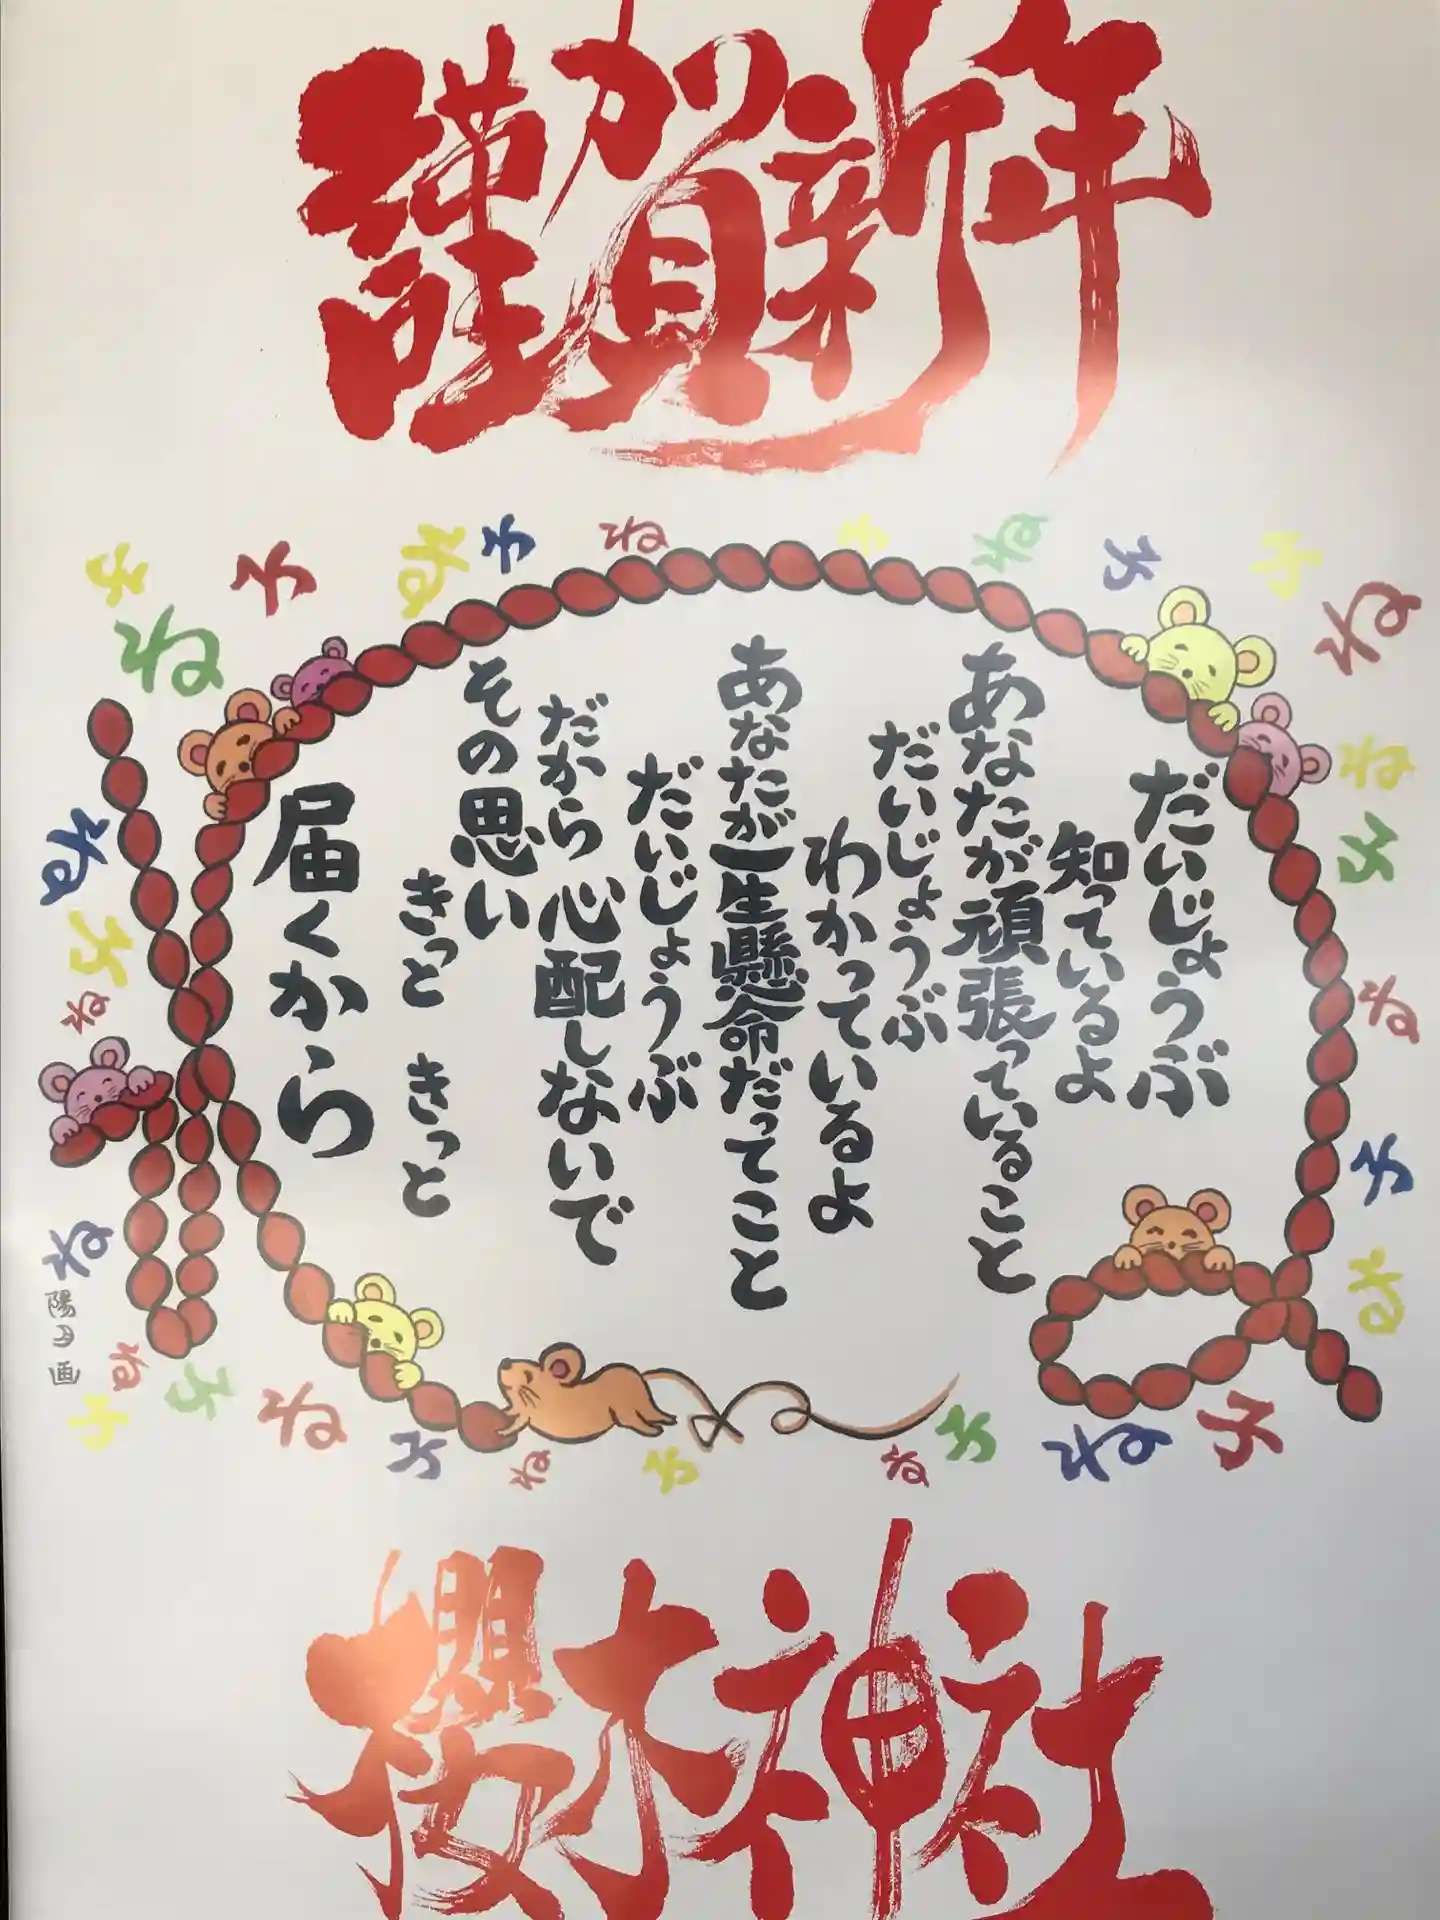 謹賀新年
だいじょうぶ
知っているよ
あなたが頑張っていること
だいじょうぶ
わかっているよ
あなたが一生懸命だってこと
だいじょうぶ
だから心配しないで
その思い
きっと きっと
届くから
子
ね
子
ね
子
ね
子
ね
子
子
ね
ね
子
ね
子
ね
ね
子
ね
ね
陽月画
ね
子
子
ね
子
ね
子
ね
子
ね
子
櫻木神社